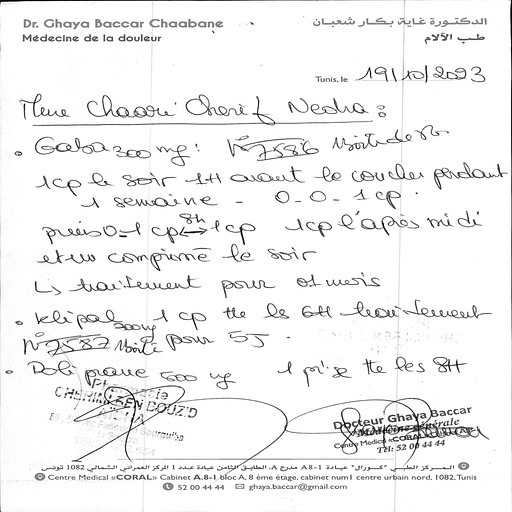 Dr. Ghaya Baccar Chaabane
الدكتورة غاية بكار شعبان
Médecine de la douleur
طب الآلام
Tunis, le 19/10/2023
Mme Chaari Cherif Nedra :
• Gaba 300 mg : N° 7586 boite de
1cp le soir 1H avant le coucher pendant
1 semaine - 0-0-1 cp.
puis 0-1 cp 8h 1 cp 1cp l'après midi
et un comprimé le soir
↳ traitement pour 01 mois
• Klipal 300mg 1 cp tte les 6H traitement
N° 7587 pour 5J.
• Doliprane 500 mg 1 prise tte les 8H
Pharmacie
BOUZID
Docteur Ghaya Baccar
Médecine générale
Centre Medical «CORAL»
Tél: 52 00 44 44
المركز الطبي "كورال" عيادة A8-1 مدرج A، الطابق الثامن عيادة عدد 1 المركز العمراني الشمالي 1082 تونس
Centre Medical «CORAL» Cabinet A.8-1 bloc A, 8 ème étage, cabinet num1 centre urbain nord, 1082, Tunis
52 00 44 44 ghaya.baccar@gmail.com